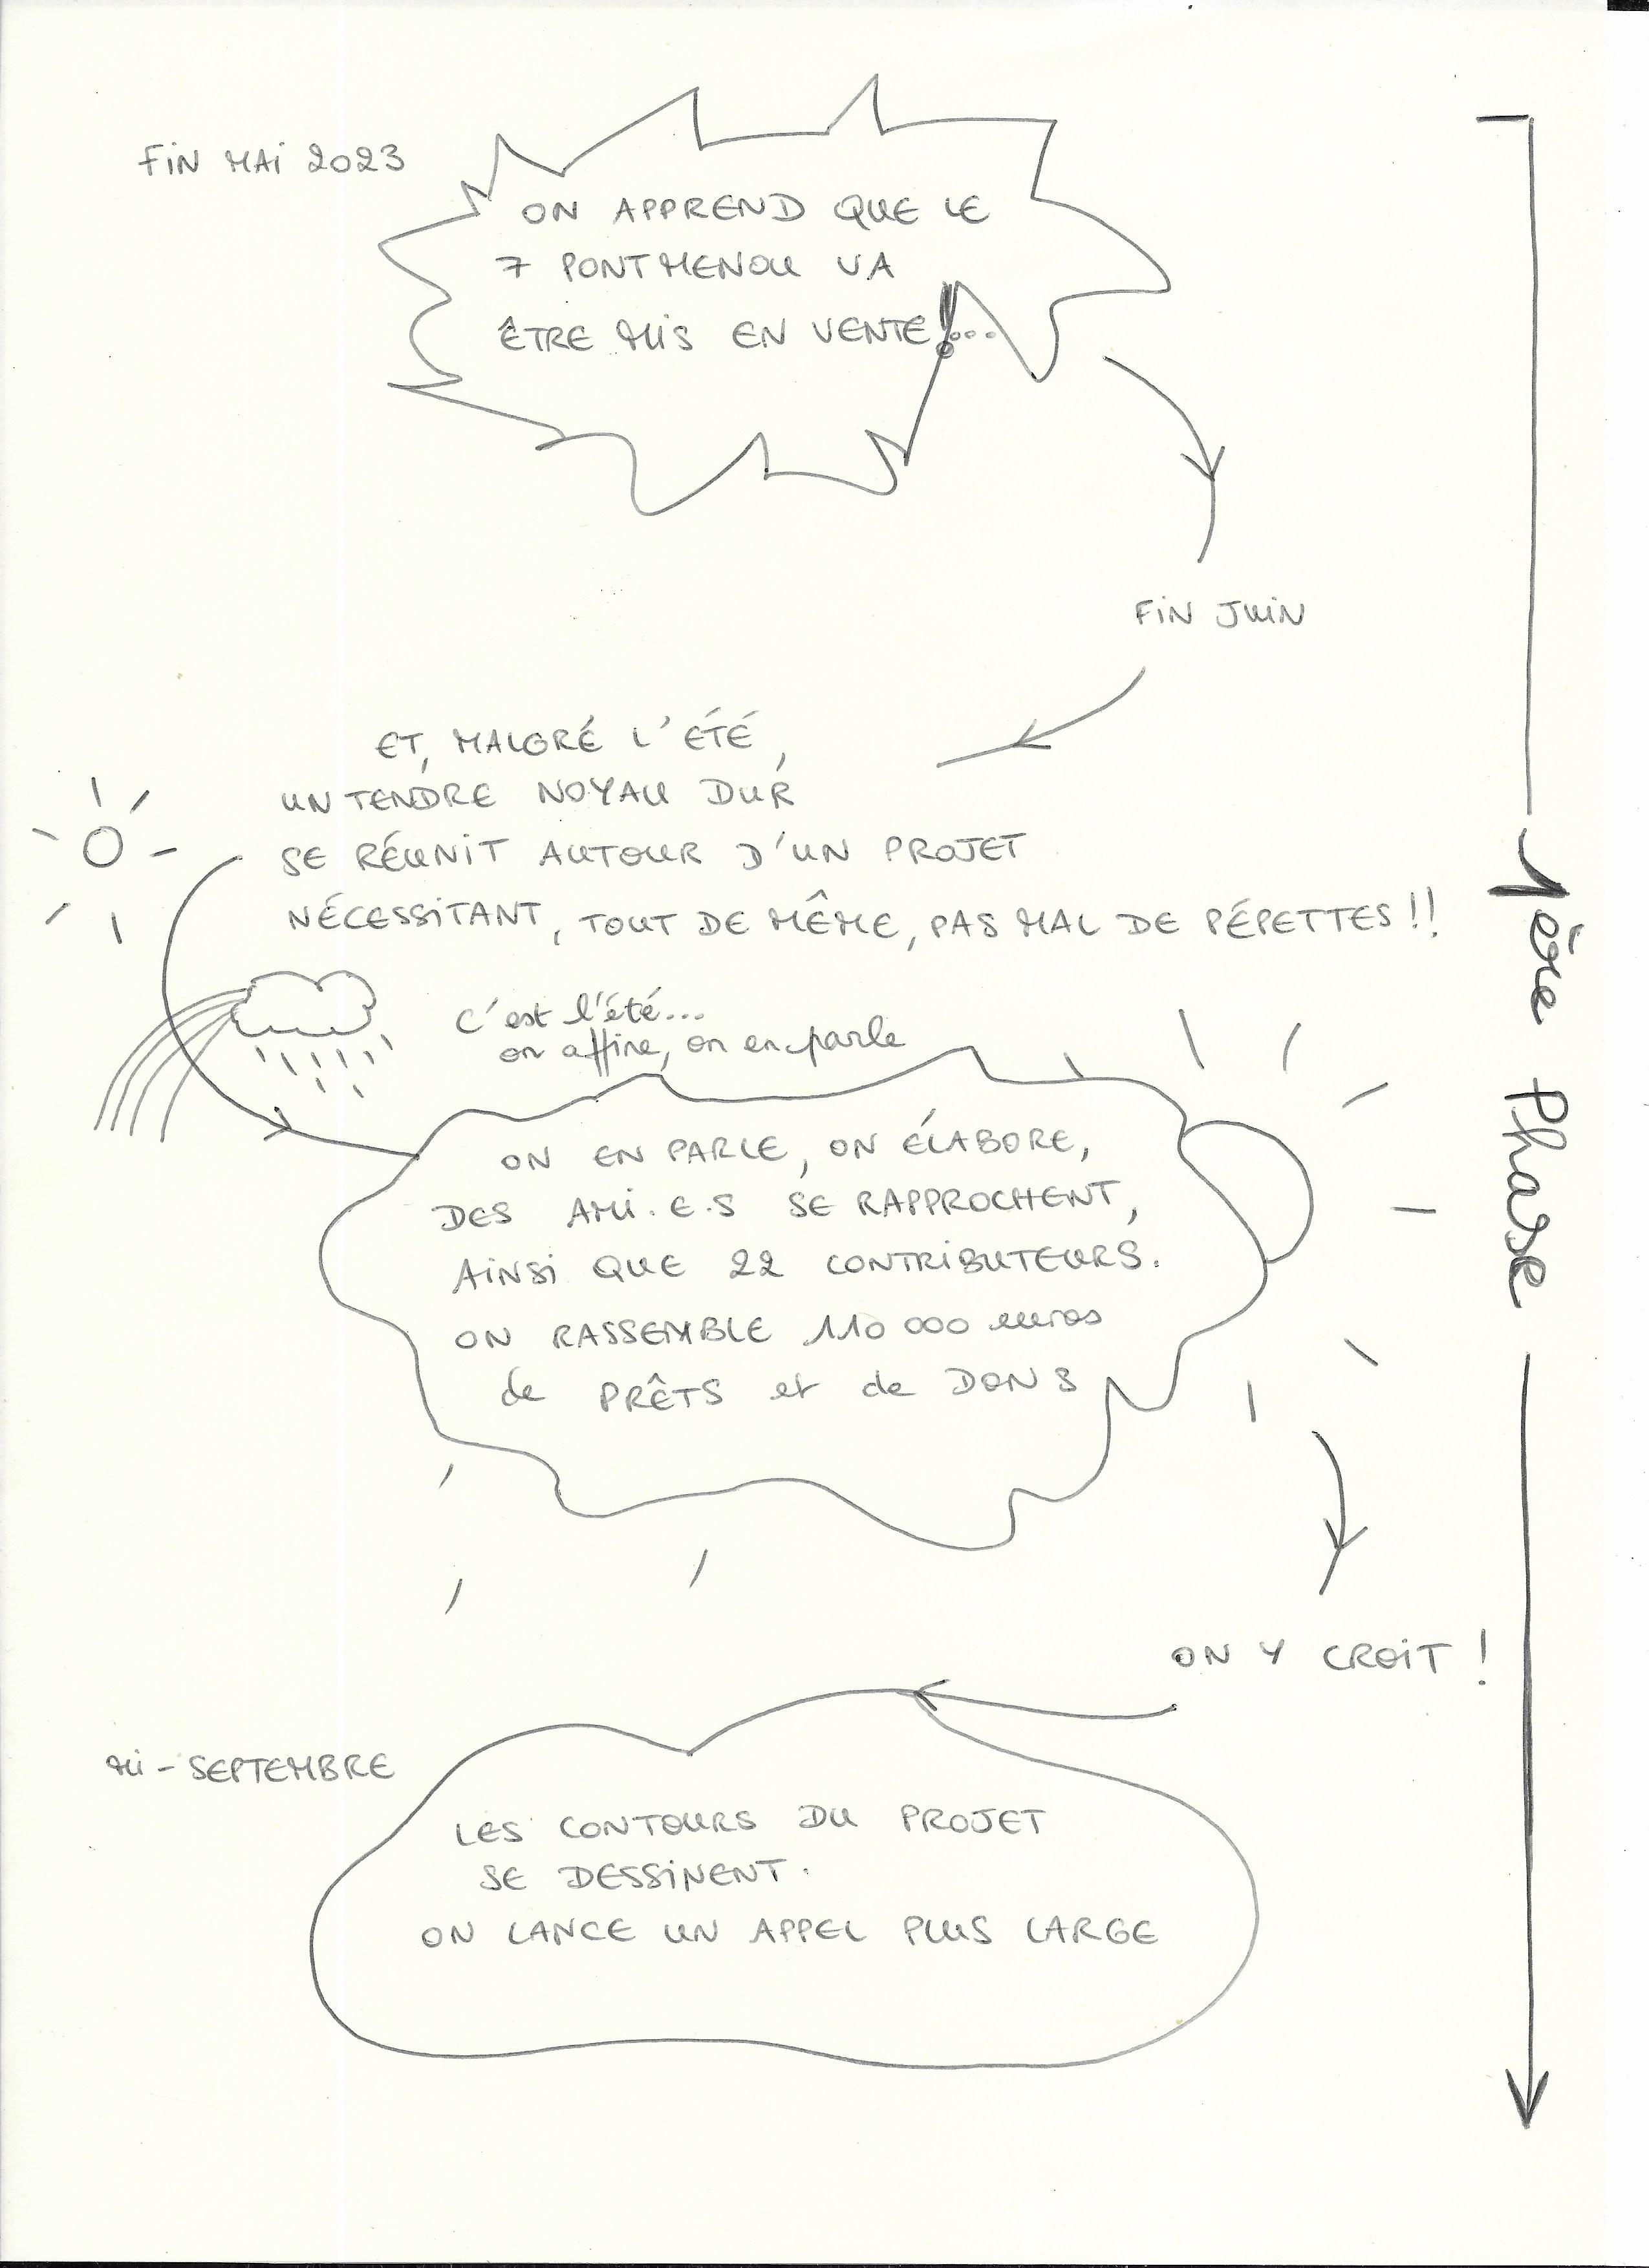 FIN MAI 2023
ON APPREND QUE LE
7 PONTMENOU VA
ÊTRE MIS EN VENTE!...
FIN JUIN
ET, MALGRÉ L'ÉTÉ,
UN TENDRE NOYAU DUR
SE RÉUNIT AUTOUR D'UN PROJET
NÉCESSITANT, TOUT DE MÊME, PAS MAL DE PÉPETTES !!
C'est l'été...
on affine, on en parle
ON EN PARLE, ON ÉLABORE,
DES AMI.E.S SE RAPPROCHENT,
AINSI QUE 22 CONTRIBUTEURS.
ON RASSEMBLE 110 000 euros
de PRÊTS et de DONS
ON Y CROIT !
MI-SEPTEMBRE
LES CONTOURS DU PROJET
SE DESSINENT.
ON LANCE UN APPEL PLUS LARGE
1ère Phase